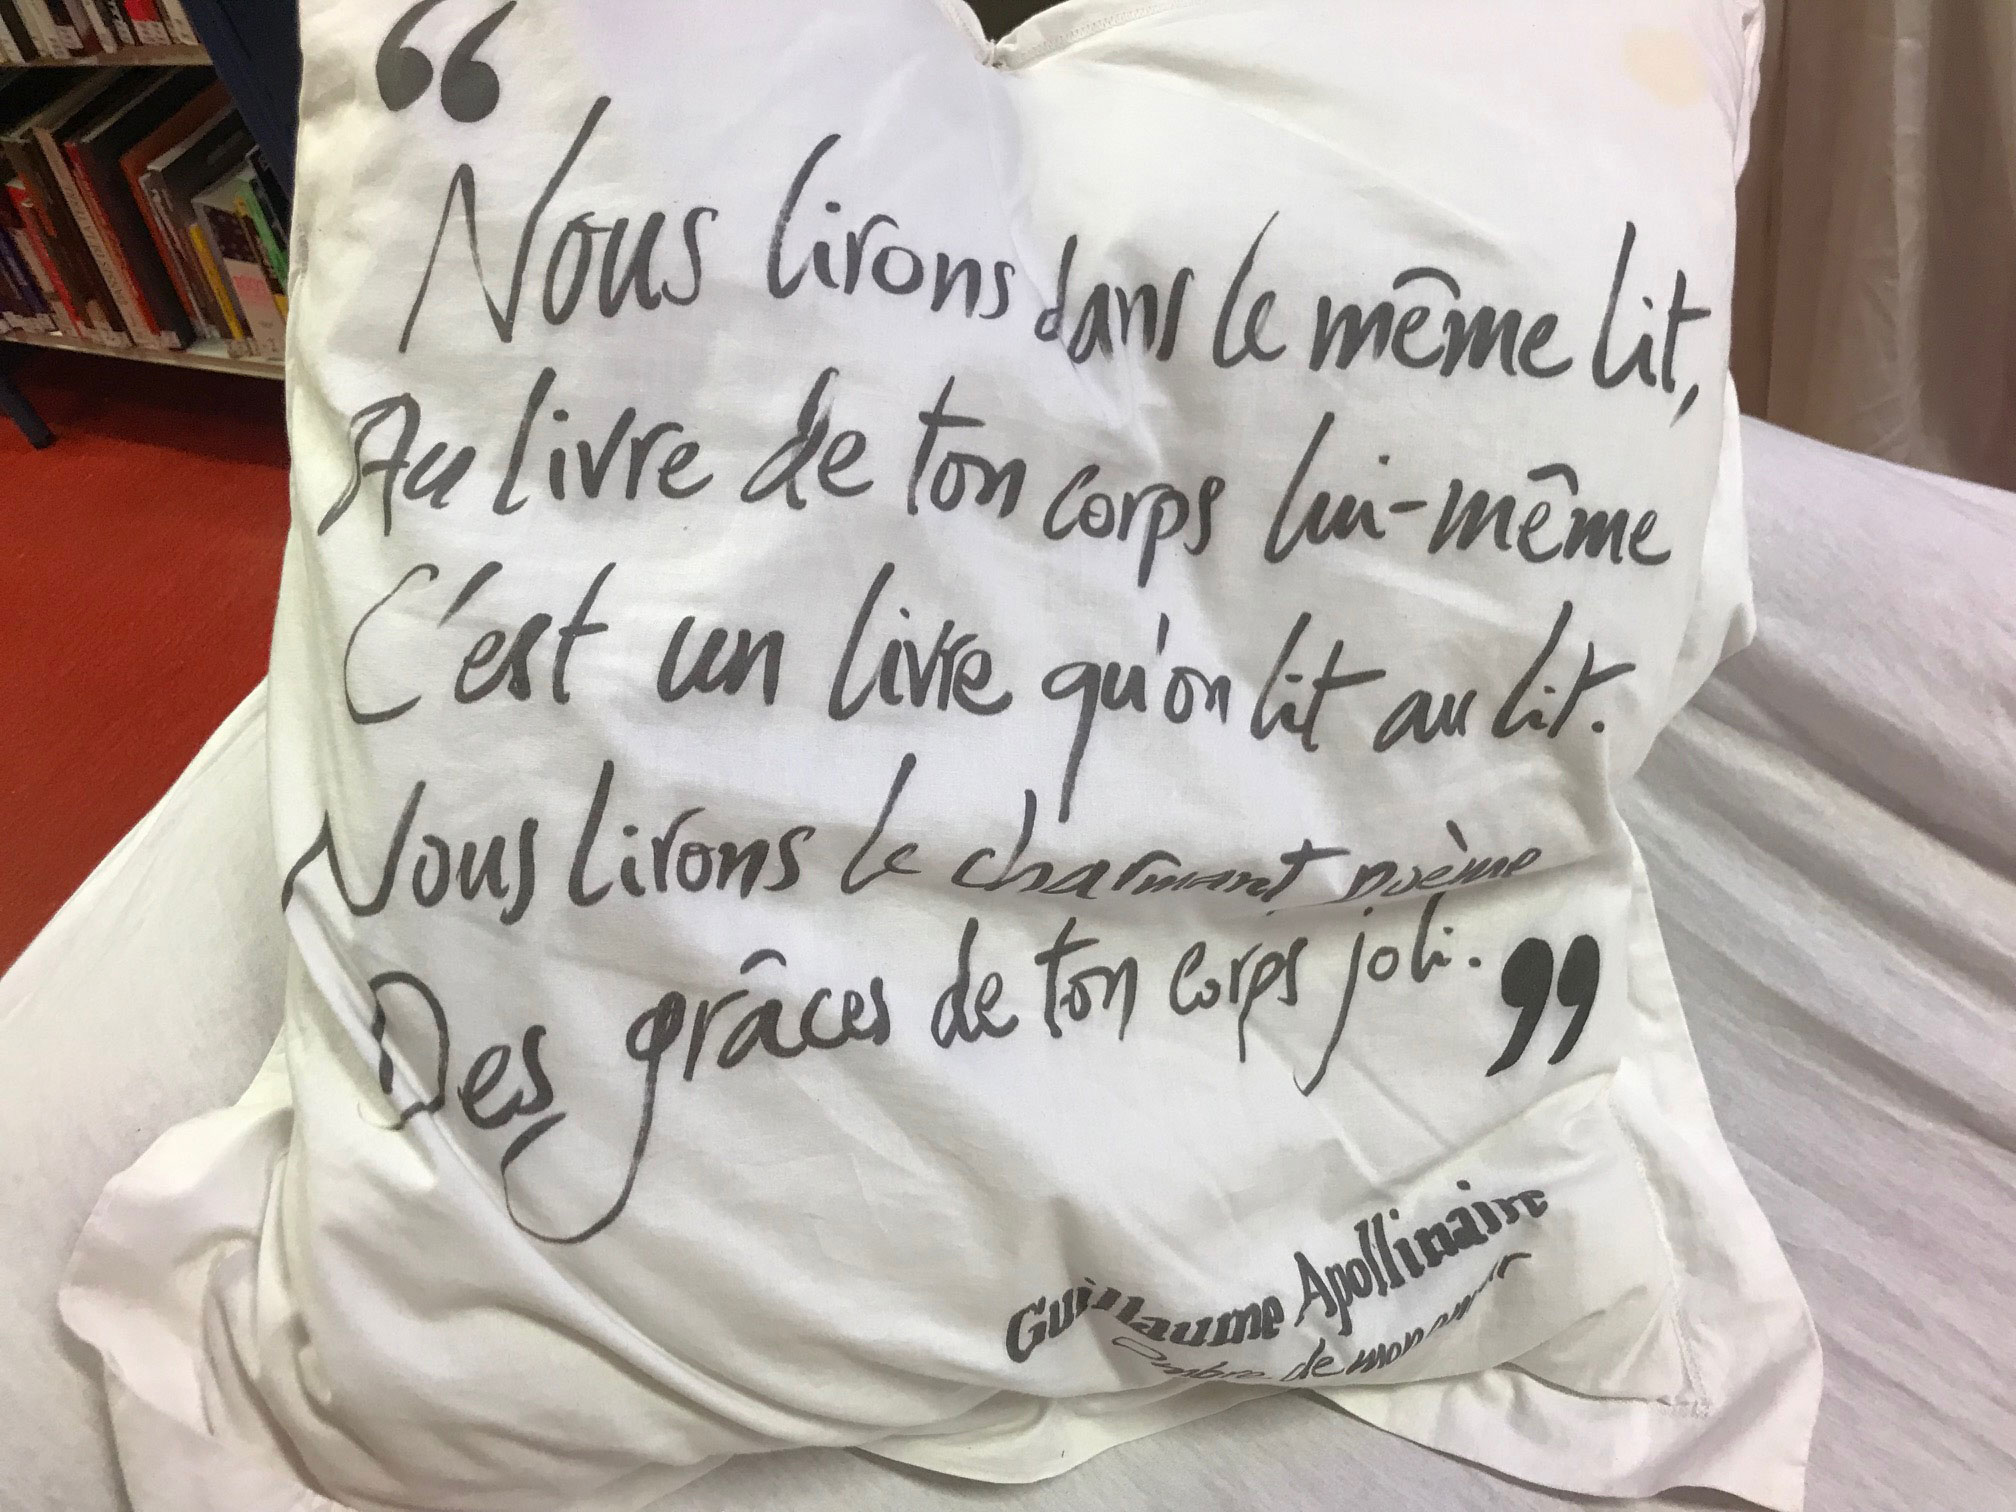 “
Nous lirons dans le même lit,
Au livre de ton corps lui-même
C'est un livre qu'on lit au lit.
Nous lirons le charmant poème
Des grâces de ton corps joli. ”
Guillaume Apollinaire
Ombre de mon amour